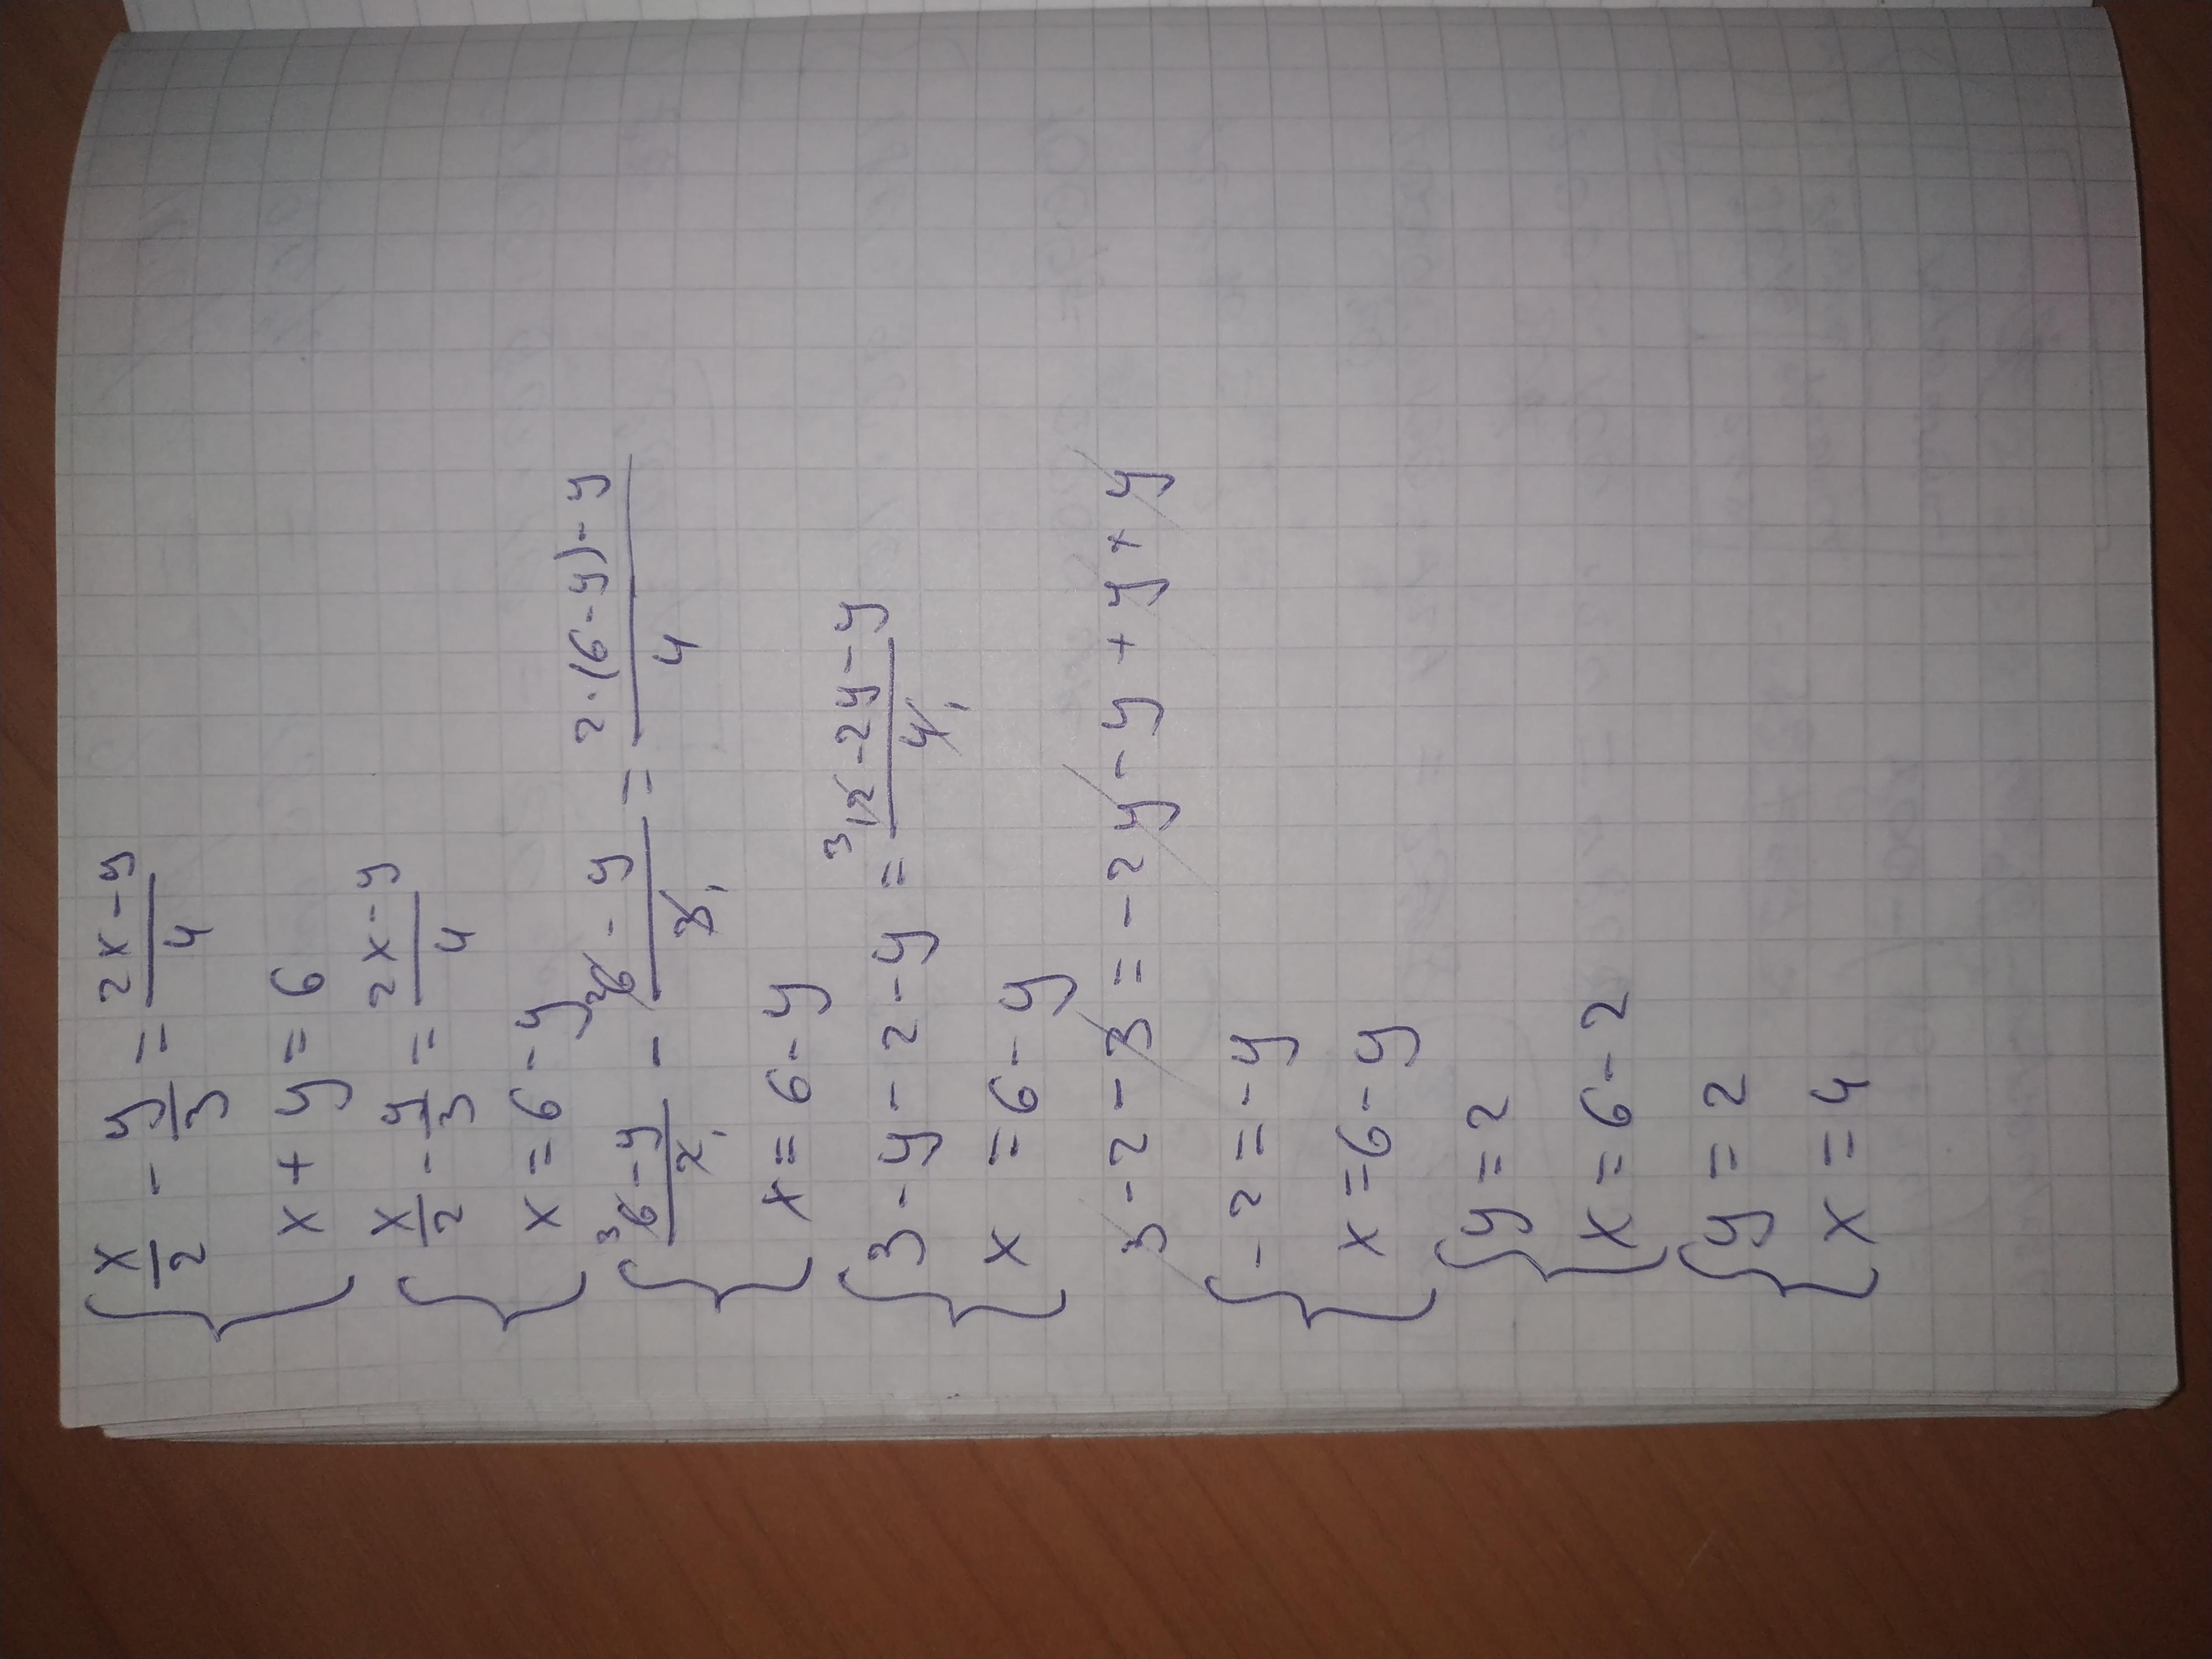 { x/2 - y/3 = (2x - y)/4
x + y = 6
{ x/2 - y/3 = (2x - y)/4
x = 6 - y
{ ³(6 - y)/2₁ - ²(6 - y)/3₁ = (2·(6 - y) - y)/4
x = 6 - y
{ 3 - y - 2 - y = ³(12 - 2y - y)/4₁
x = 6 - y
3 - 2 - 3 = -2y - y + y + y
{ -2 = -y
x = 6 - y
{ y = 2
x = 6 - 2
{ y = 2
x = 4